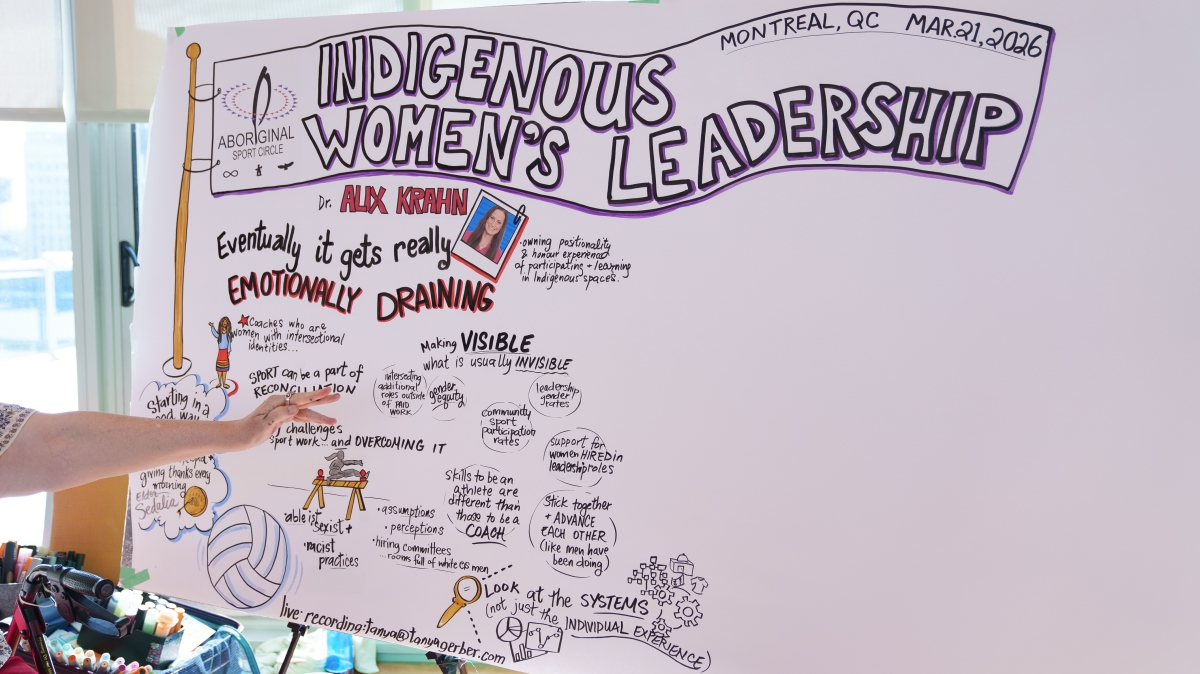 MONTREAL, QC MAR.21, 2026
INDIGENOUS
WOMEN'S LEADERSHIP
ABORIGINAL
SPORT CIRCLE
Dr. ALIX KRAHN
Eventually it gets really
EMOTIONALLY DRAINING
·owning positionality
& honour experiences
of participating + learning
in Indigenous spaces.
Coaches who are
women with intersectional
identities...
SPORT can be a part of
RECONCILIATION
Making VISIBLE
what is usually INVISIBLE
intersecting
additional
roles outside
of PAID
WORK
gender
equity
leadership
gender
rates
community
sport
participation
rates
support for
women HIRED in
leadership roles
Starting in a
giving thanks every
morning
Elder
Sedalia
challenges
sport work... and OVERCOMING IT
·ableist
sexist +
·racist
practices
·assumptions
·perceptions
·hiring committees
...rooms full of white cis men
skills to be an
athlete are
different than
those to be a
COACH
Stick together
+ ADVANCE
EACH OTHER
(like men have
been doing)
LOOK at the SYSTEMS
(not just the INDIVIDUAL EXPERIENCE)
live recording: tanya@tanyagerber.com